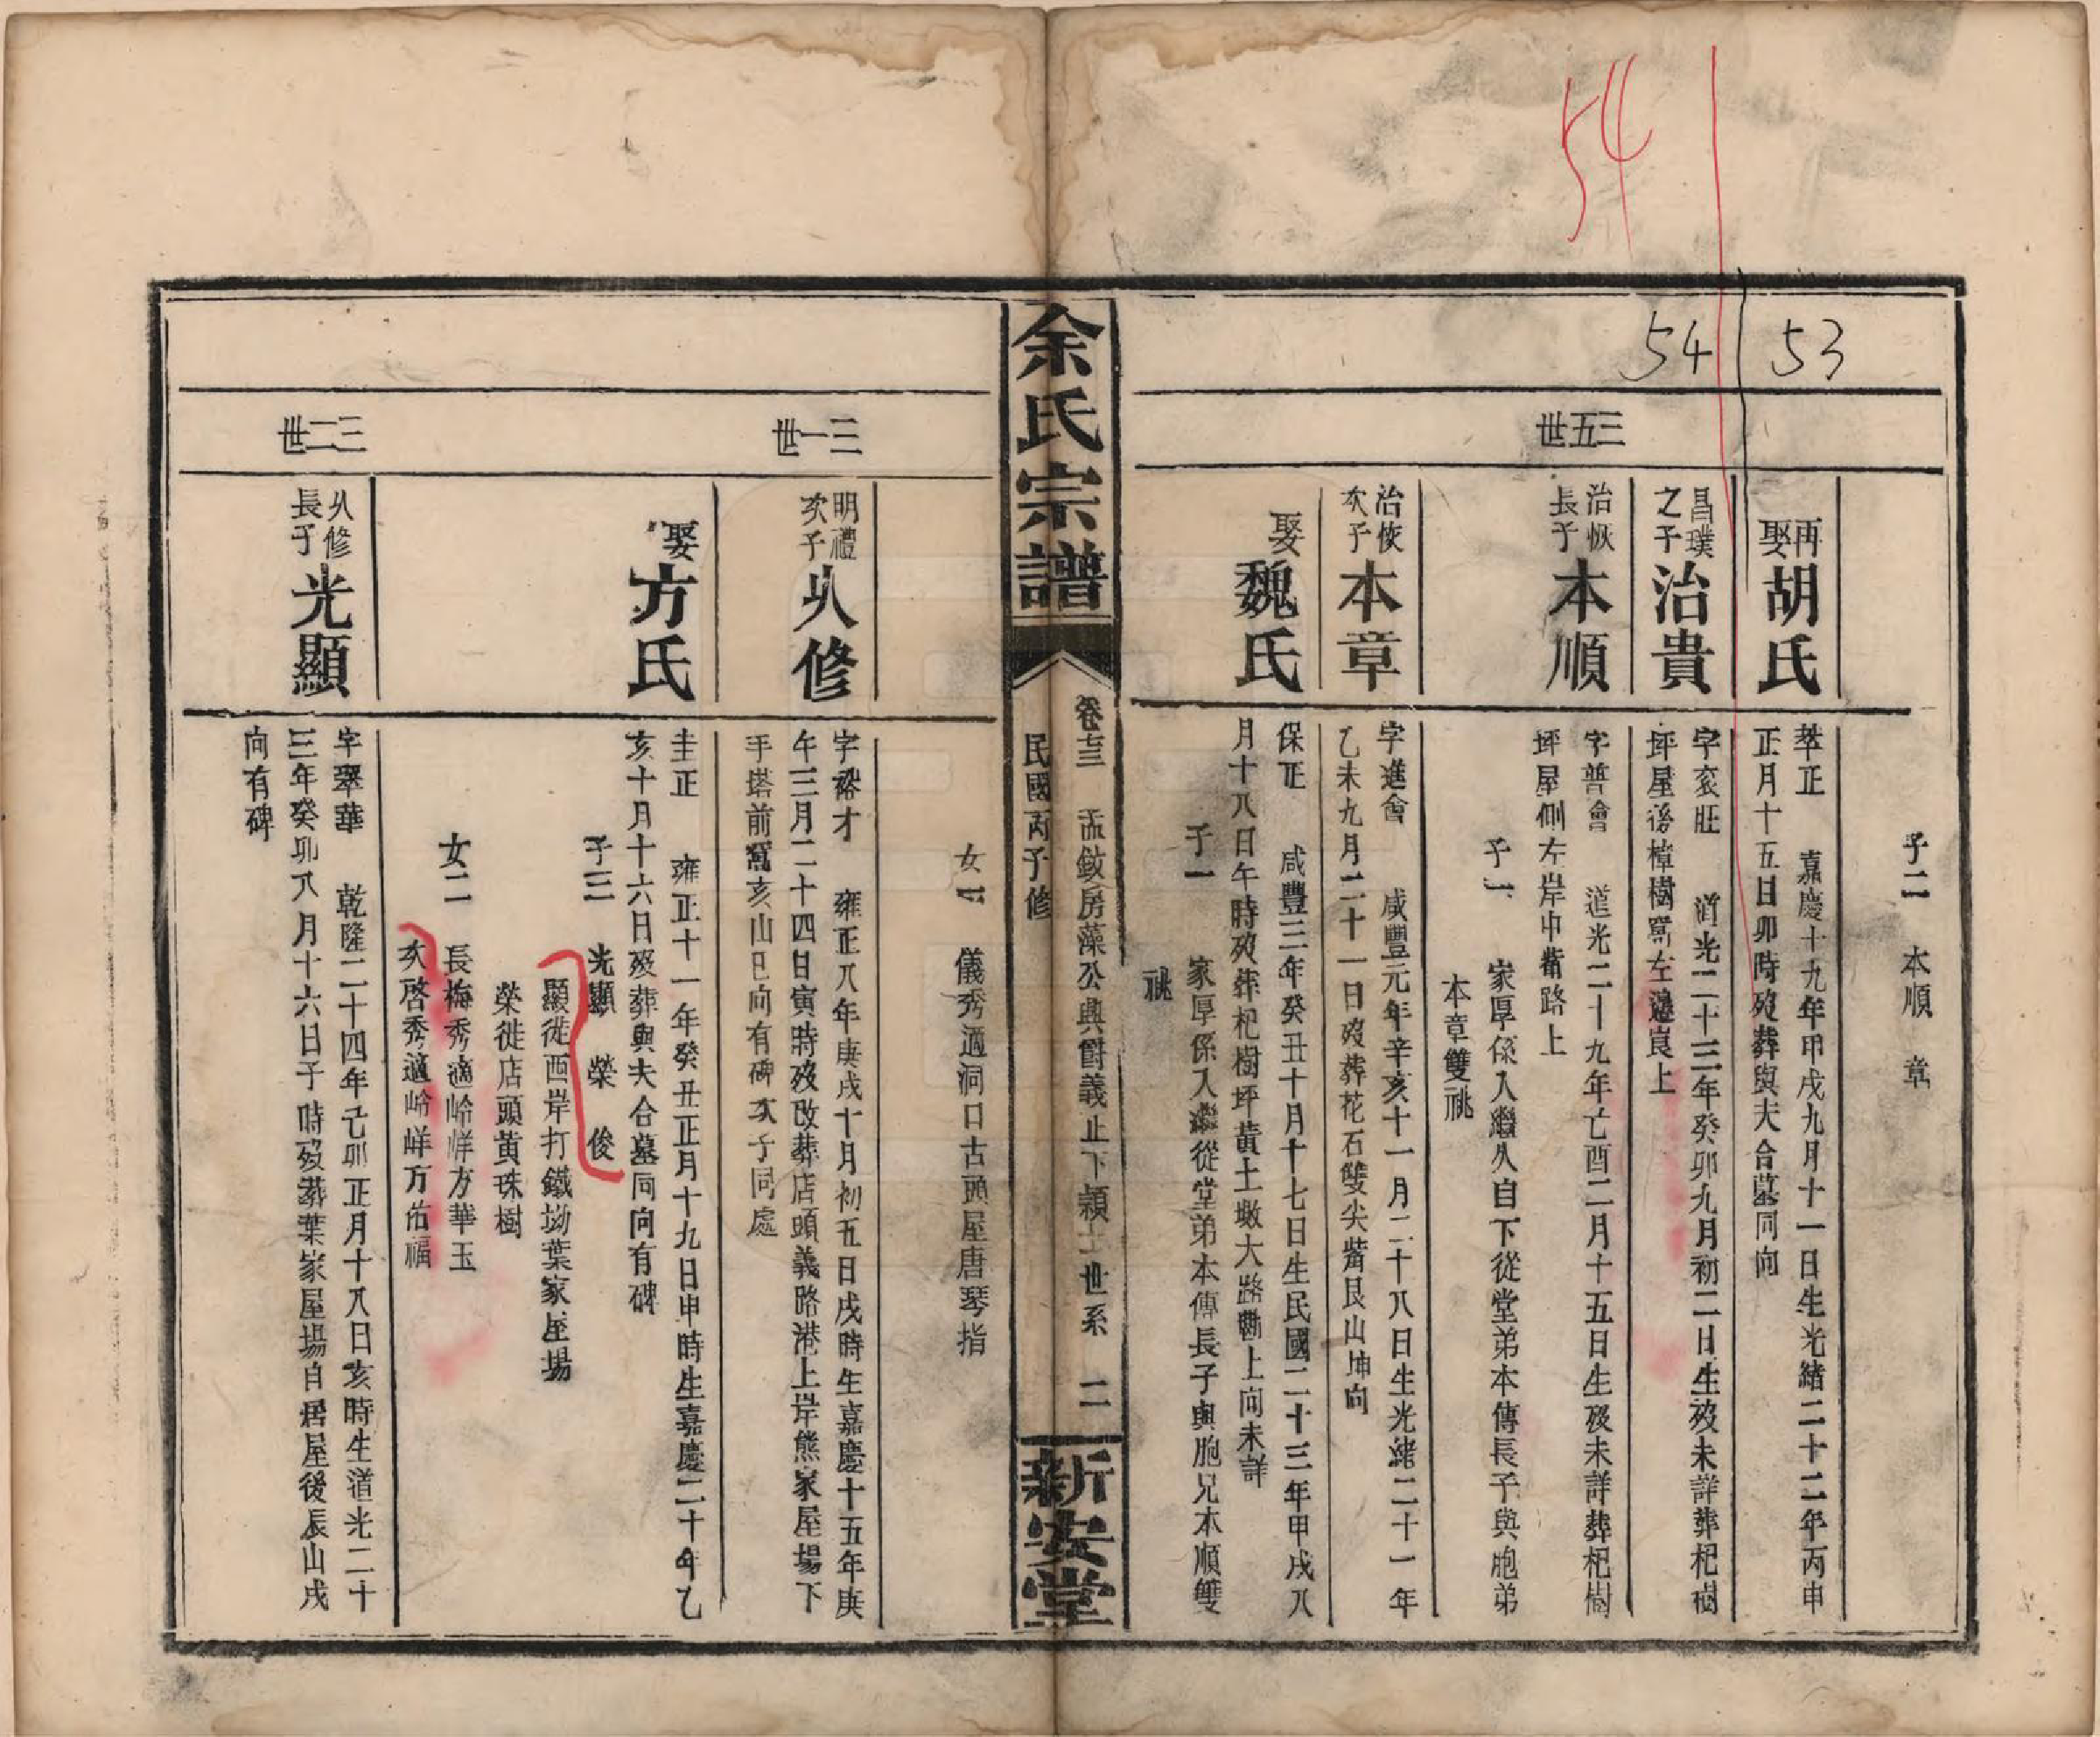 54
53
54
三五世
子二　本順　章
再娶胡氏
萃正　嘉慶十九年甲戌九月十一日生光緒二十二年丙申
正月十五日卯時歿葬與夫合墓同向
昌璞之子治貴
字衮旺　道光二十三年癸卯九月初二日生歿未詳葬杷樹
坪屋後樟樹窩左邊崀上
治恢長子本順
字普會　道光二十九年己酉二月十五日生歿未詳葬杷樹
坪屋側左岸中觜路上
子一　家厚係入繼久自下從堂弟本傳長子與胞弟
本章雙祧
治恢次子本章
字進會　咸豐元年辛亥十一月二十八日生光緒二十一年
乙未九月二十一日歿葬花石雙尖觜艮山坤向
娶魏氏
保正　咸豐三年癸丑十月十七日生民國二十三年甲戌八
月十八日午時歿葬杷樹坪黃土墩大路墈上向未詳
子一　家厚係入繼從堂弟本傳長子與胞兄本順雙
祧
余氏宗譜
卷士三　孟敏房藻公與爵義止下穎士世系　二
民國丙子修
新安堂
女一　儀秀適洞口古頭屋唐琴指
三一世
明禮次子从修
字裕才　雍正八年庚戌十月初五日戌時生嘉慶十五年庚
午三月二十四日寅時歿改葬店頭義路港上岸熊家屋場下
手塔前窩亥山巳向有碑次子同處
娶方氏
圭正　雍正十一年癸丑正月十九日申時生嘉慶二十年乙
亥十月十六日歿葬與夫合墓同向有碑
子三　光顯　榮　俊
顯徙西岸打鐵坳葉家屋場
榮徙店頭黃珠樹
女二　長梅秀適岭垟方華玉
次啓秀適岭垟方佑福
三二世
从修長子光顯
字翠華　乾隆二十四年己卯正月十八日亥時生道光二十
三年癸卯八月十六日子時歿葬葉家屋場自居屋後辰山戌
向有碑